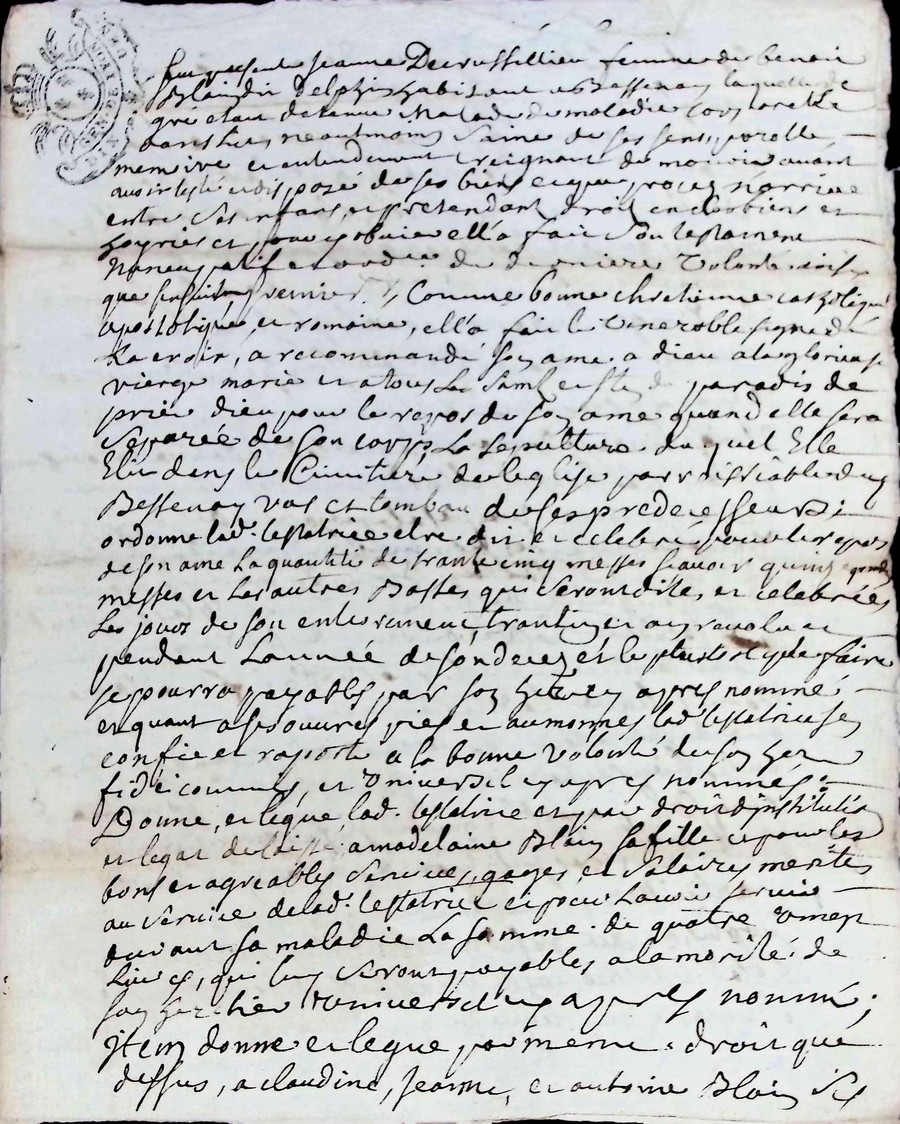 fut presente Jeanne Decrussillieu femme de benoir
Blain dit Delphin habitant a Bessenay laquelle de
gre etant detenue Malade de maladie corporelle
dans un lit neautmoins Saine de ses sens, parolle
memoire et entendement Creignant de mourir avant
avoir testé et disposé de ses biens et que procez n'arrive
entre Ses enfans, et pretendant droit en des biens et
hoyries et pour y obvier ell'a fait Son testament
Noncupatif et ord.re de derniere Volonté ainsy
que s'ensuit premier.t Comme bonne chretienne catholique
apostolique, et romaine, ell'a fait le Venerable signe de
La croix, a recommandé son ame a dieu a la glorieuse
vierge marie et a tous Les Saints et Stes de paradis de
prier dieu pour le repos de son ame quand elle sera
Separée de son corps La sepulture duquel Elle
Elit dans le Cimitiere de l'eglise parroissiable dud
Bessenay vas et tombeau de ses predecesseurs;
ordonne lad. testatrice etre dit et celebré pour le repos
de son ame La quantité de trante cinq messes scavoir quinze grandes
messes et Les autres Basses qui Seront dites, et celebrées
Les jours de son enterrement, trantin et an revolu et
pendant L'année de son decez et le plustost que faire
se pourra payables par son her.er cy apres nommé,
et quant a ses œuvres pies et aumonnes lad. testatrice s'en
confie et raporte a la bonne volonté de son her.
fideicommis, et Universel cy apres nommés:
Donne, et legue lad. testatrice et par droit d'institution
et legat delaisse a madelaine Blain sa fille et pour les
bons et agreables Services, gages, et Salaires merités
au Service de lad. testatrice et pour L'avoir servie
durant sa maladie La somme de quatre Vingt
Livres, qui luy Seront payables a la moitié de
son heritier Universel cy apres nommé;
Item donne et legue par meme droit que
dessus, a claudine, Jeanne, et antoine Blain Ses